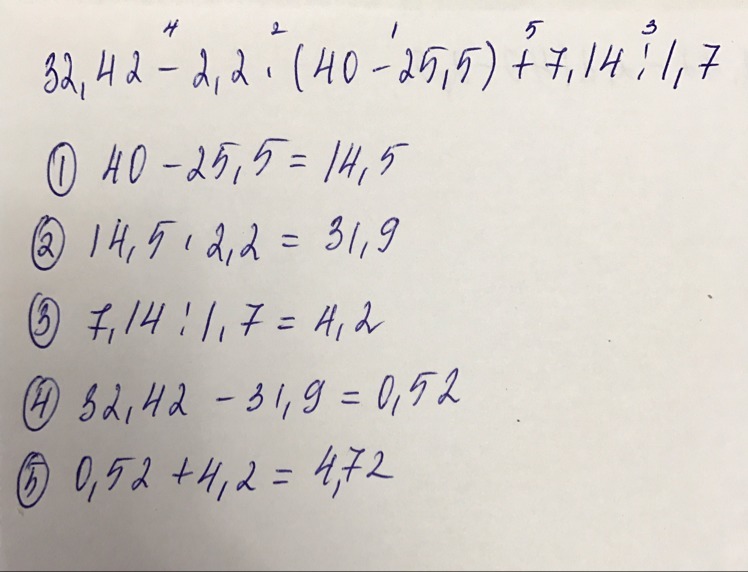 4 2 1 5 3
32,42 - 2,2 · (40 - 25,5) + 7,14 : 1,7
① 40 - 25,5 = 14,5
② 14,5 · 2,2 = 31,9
③ 7,14 : 1,7 = 4,2
④ 32,42 - 31,9 = 0,52
⑤ 0,52 + 4,2 = 4,72